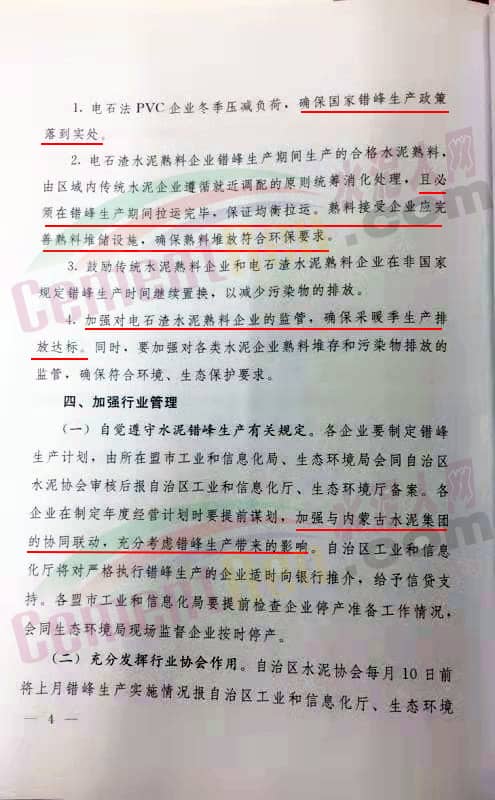 1. 电石法 PVC 企业冬季压减负荷，确保国家错峰生产政策
落到实处。
2. 电石渣水泥熟料企业错峰生产期间生产的合格水泥熟料，
由区域内传统水泥企业遵循就近调配的原则统筹消化处理，且必
须在错峰生产期间拉运完毕，保证均衡拉运。熟料接受企业应完
善熟料堆储设施，确保熟料堆放符合环保要求。
3. 鼓励传统水泥熟料企业和电石渣水泥熟料企业在非国家
规定错峰生产时间继续置换，以减少污染物的排放。
4. 加强对电石渣水泥熟料企业的监管，确保采暖季生产排
放达标。同时，要加强对各类水泥企业熟料堆存和污染物排放的
监管，确保符合环境、生态保护要求。
四、加强行业管理
（一）自觉遵守水泥错峰生产有关规定。各企业要制定错峰
生产计划，由所在盟市工业和信息化局、生态环境局会同自治区
水泥协会审核后报自治区工业和信息化厅、生态环境厅备案。各
企业在制定年度经营计划时要提前谋划，加强与内蒙古水泥集团
的协同联动，充分考虑错峰生产带来的影响。自治区工业和信息
化厅将对严格执行错峰生产的企业适时向银行推介，给予信贷支
持。各盟市工业和信息化局要提前检查企业停产准备工作情况，
会同生态环境局现场监督企业按时停产。
（二）充分发挥行业协会作用。自治区水泥协会每月 10 日前
将上月错峰生产实施情况报自治区工业和信息化厅、生态环境
— 4 —